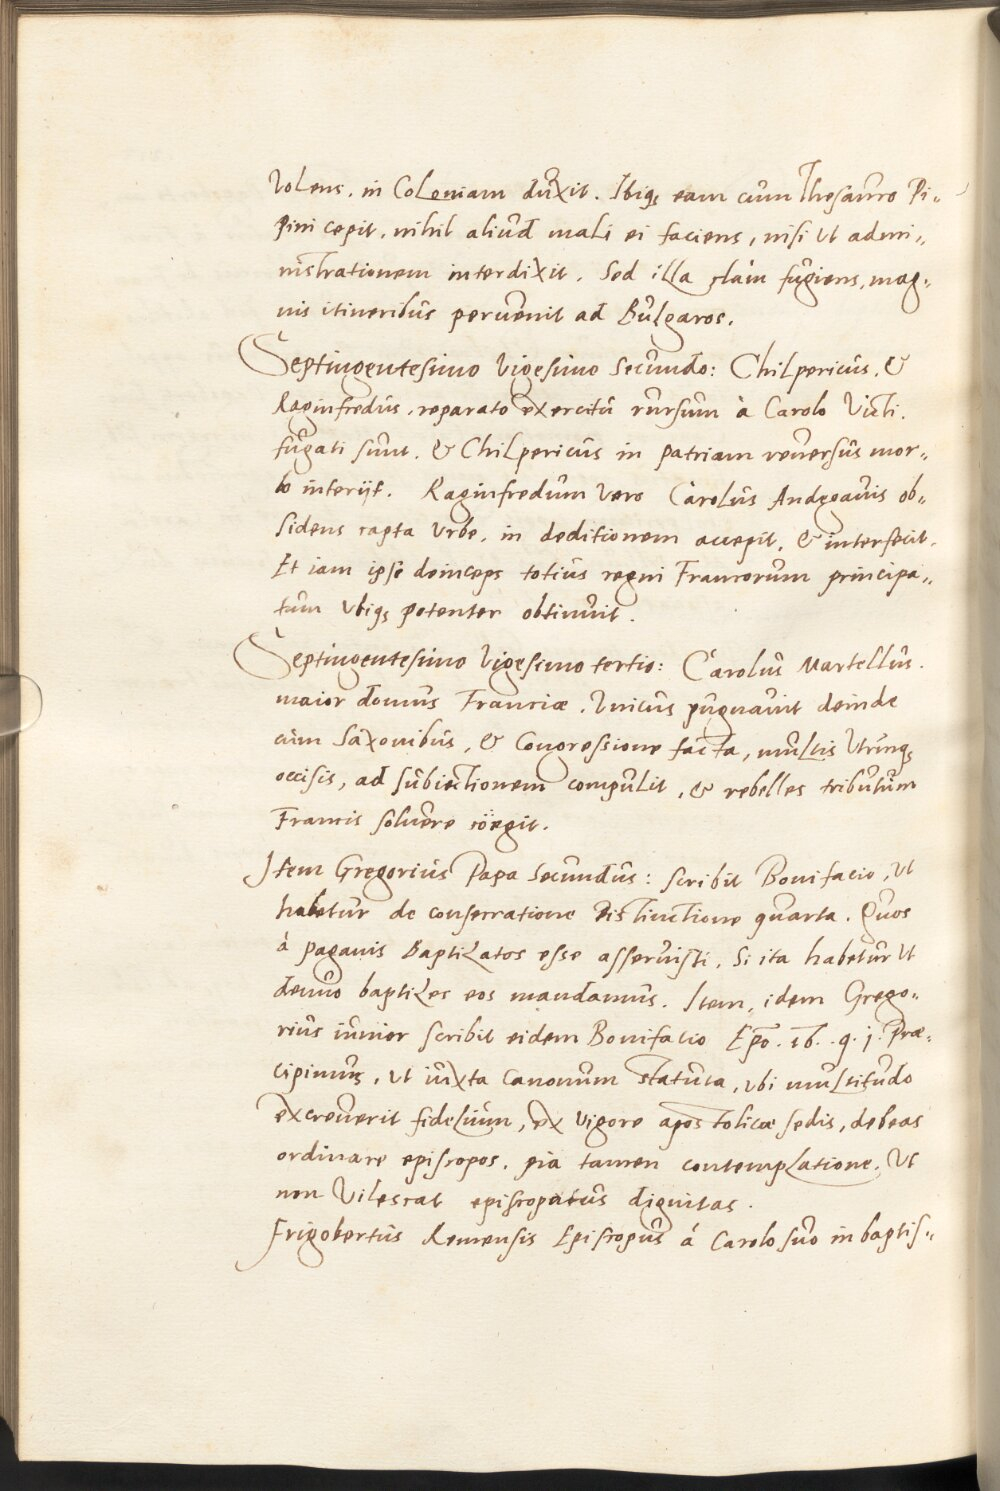 Volens, in Coloniam duxit. Ibiq; eam cum Thesauro Pi„
pini cepit, nihil aliud mali ei faciens, nisi ut admi„
nistrationem interdixit. Sed illa clam fugiens, mag„
nis itineribus peruenit ad Bulgaros.
Septingentesimo Vigesimo Secundo: Chilpericus, &
Raginfredus, reparato exercitu rursum à Carolo Victi.
fugati sunt. & Chilpericus in patriam reuersus mor„
bo interijt. Raginfredum Vero Carolus Andegauis ob„
sidens capta Vrbe, in deditionem accepit, & interfecit.
Et iam ipse deinceps totius regni Francorum principa„
tum Vbiq; potenter obtinuit.
Septingentesimo Vigesimo tertio: Carolus Martellus.
maior domus Franciæ, Vnicus pugnauit deinde
cum Saxonibus, & Congressione facta, multis Vtrinq;
occisis, ad subiectionem compulit, & rebelles tributum
Francis soluere cöegit.
Item Gregorius Papa Secundus: scribit Bonifacio, Vt
habetur de consecratione Distinctione quarta. Quos
à paganis Baptizatos esse asseruisti, Si ita habetur Vt
denuo baptizes eos mandamus. Item, idem Grego„
rius iunior scribit eidem Bonifacio Ep̃o. 16. q. j. Præ„
cipimus, Vt iuxta Canonum statuta, Vbi multitudo
excreuerit fidelium, ex Vigore apostolicæ sedis, debeas
ordinare episcopos, pia tamen contemplatione, Vt
non Vilescat episcopatus dignitas.
Frigobertus Remensis Episcopus á Carolo suo in baptis„